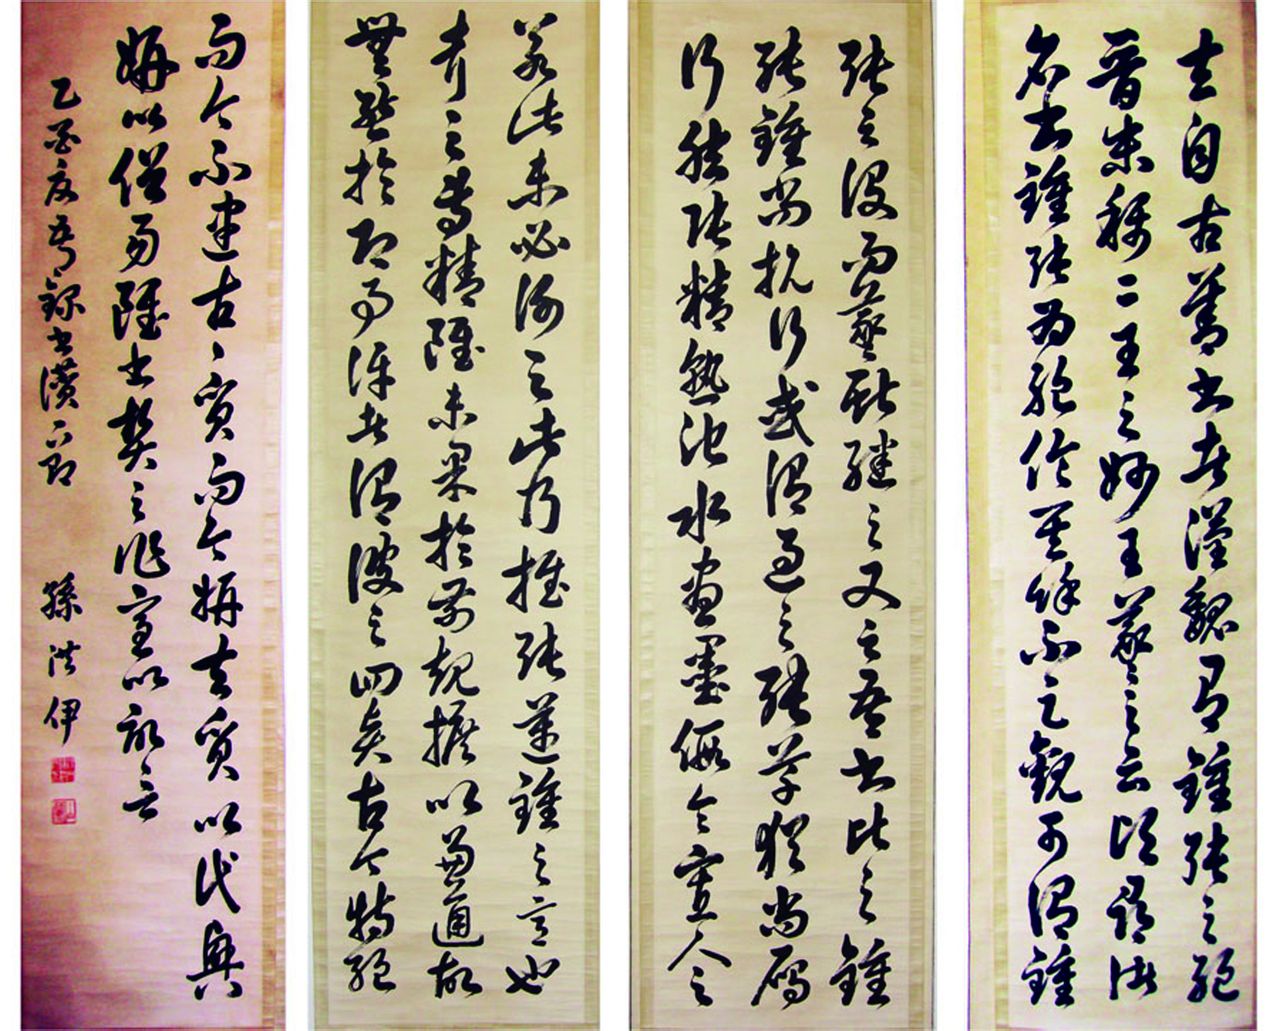 夫自古善書者漢魏有鍾張之絕
晉末稱二王之妙王羲之云頃尋諸
名書鍾張為絕倫其餘不足觀可謂鍾
張云沒而羲獻繼之又云吾書比之鍾
張鍾當抗行或謂過之張草猶當雁
行然張精熟池水盡墨假令寡人之
若此未必謝之此乃推張邁鍾之意也
考之專精雖未果於前規摭以兼通故
無慙於即事評者謂彼之四賢古今特絕
而今不逮古古質而今妍夫質以代興
妍以俗易雖書契之作適以記言
錄書譜一節 孫洪伊